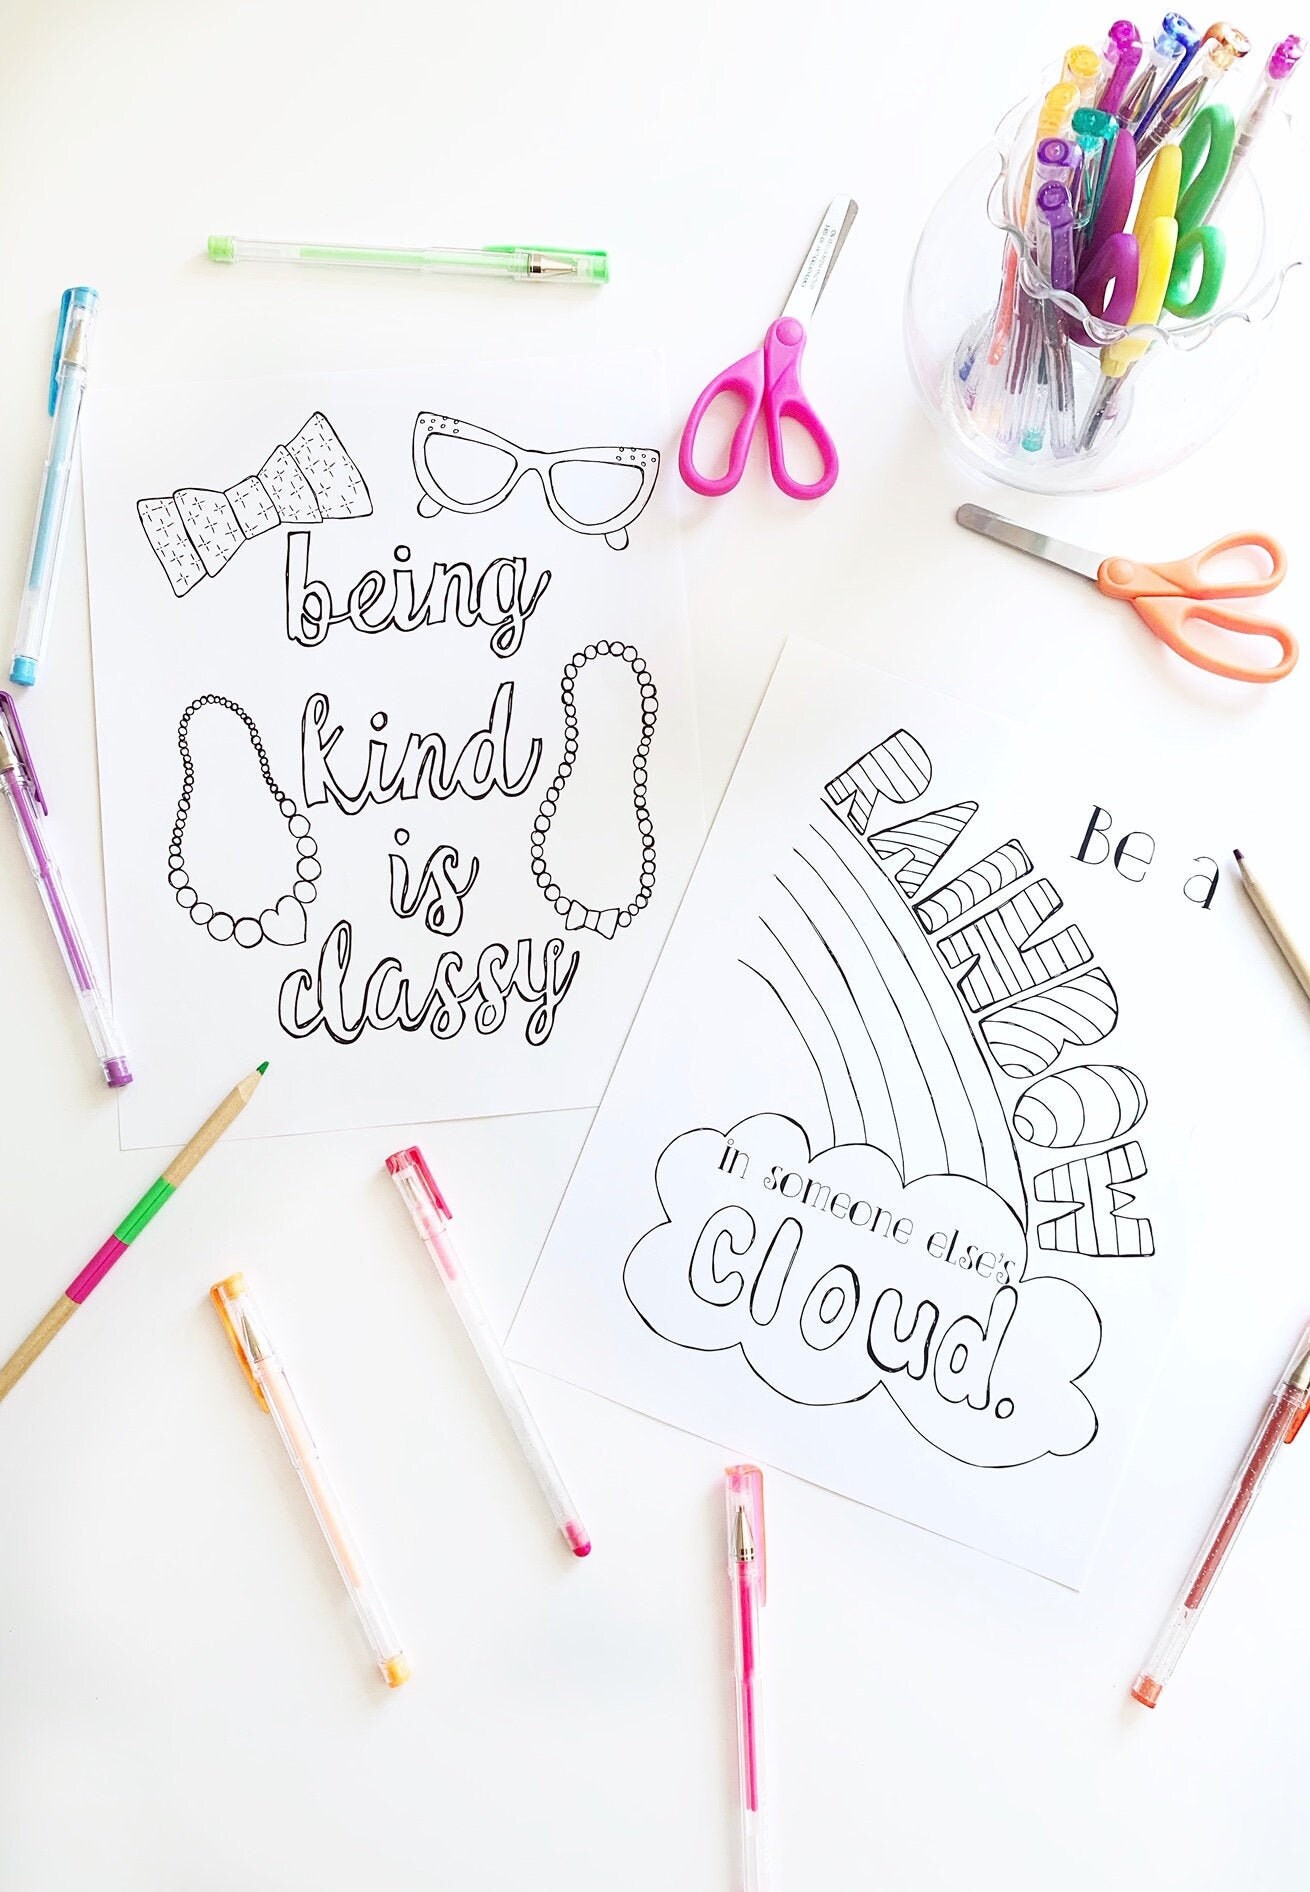 being
kind
is
classy
Be a
RAINBOW
in someone else's
cloud.